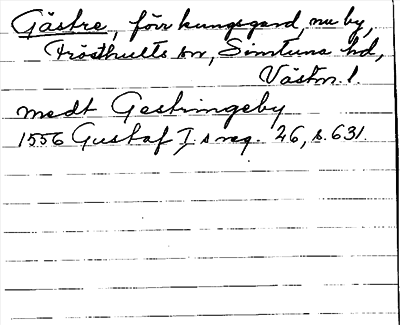 Gästre, förr kungsgard, nu by,
Frösthults sn, Simtuna hd,
Västm. l.
medt Gestringeby
1556 Gustaf I.s reg. 26, s. 631.